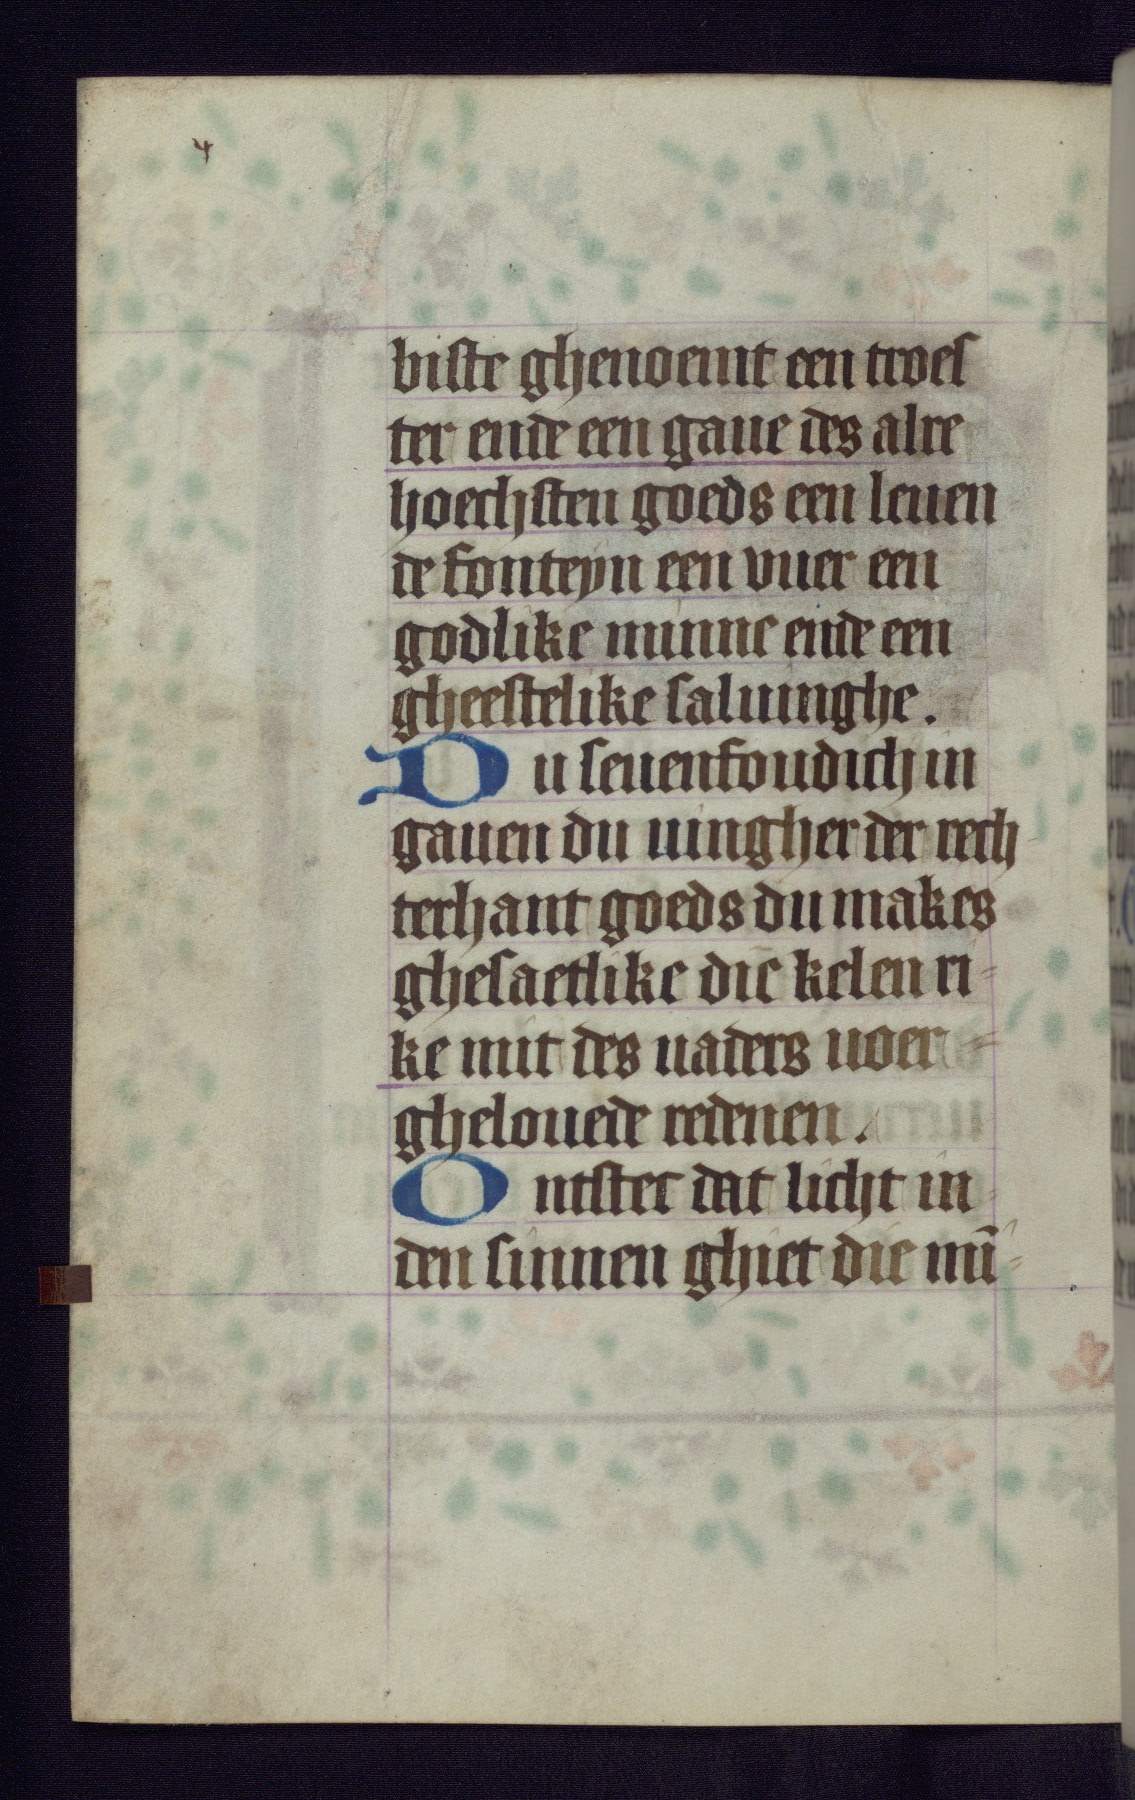 4
biste ghenoemt een troes
ter ende een gaue des alre
hoechsten goeds een leuen
de fonteyn een vuer een
godlike minne ende een
gheestelike saluinghe.
Du seuenfoudich in
gauen du uingher der rech
terhant goeds du makes
ghesaetlike die kelen ri-
ke mit des uaders uoer-
ghelouede redenen.
Ontster dat licht in-
den sinnen ghiet die mī-